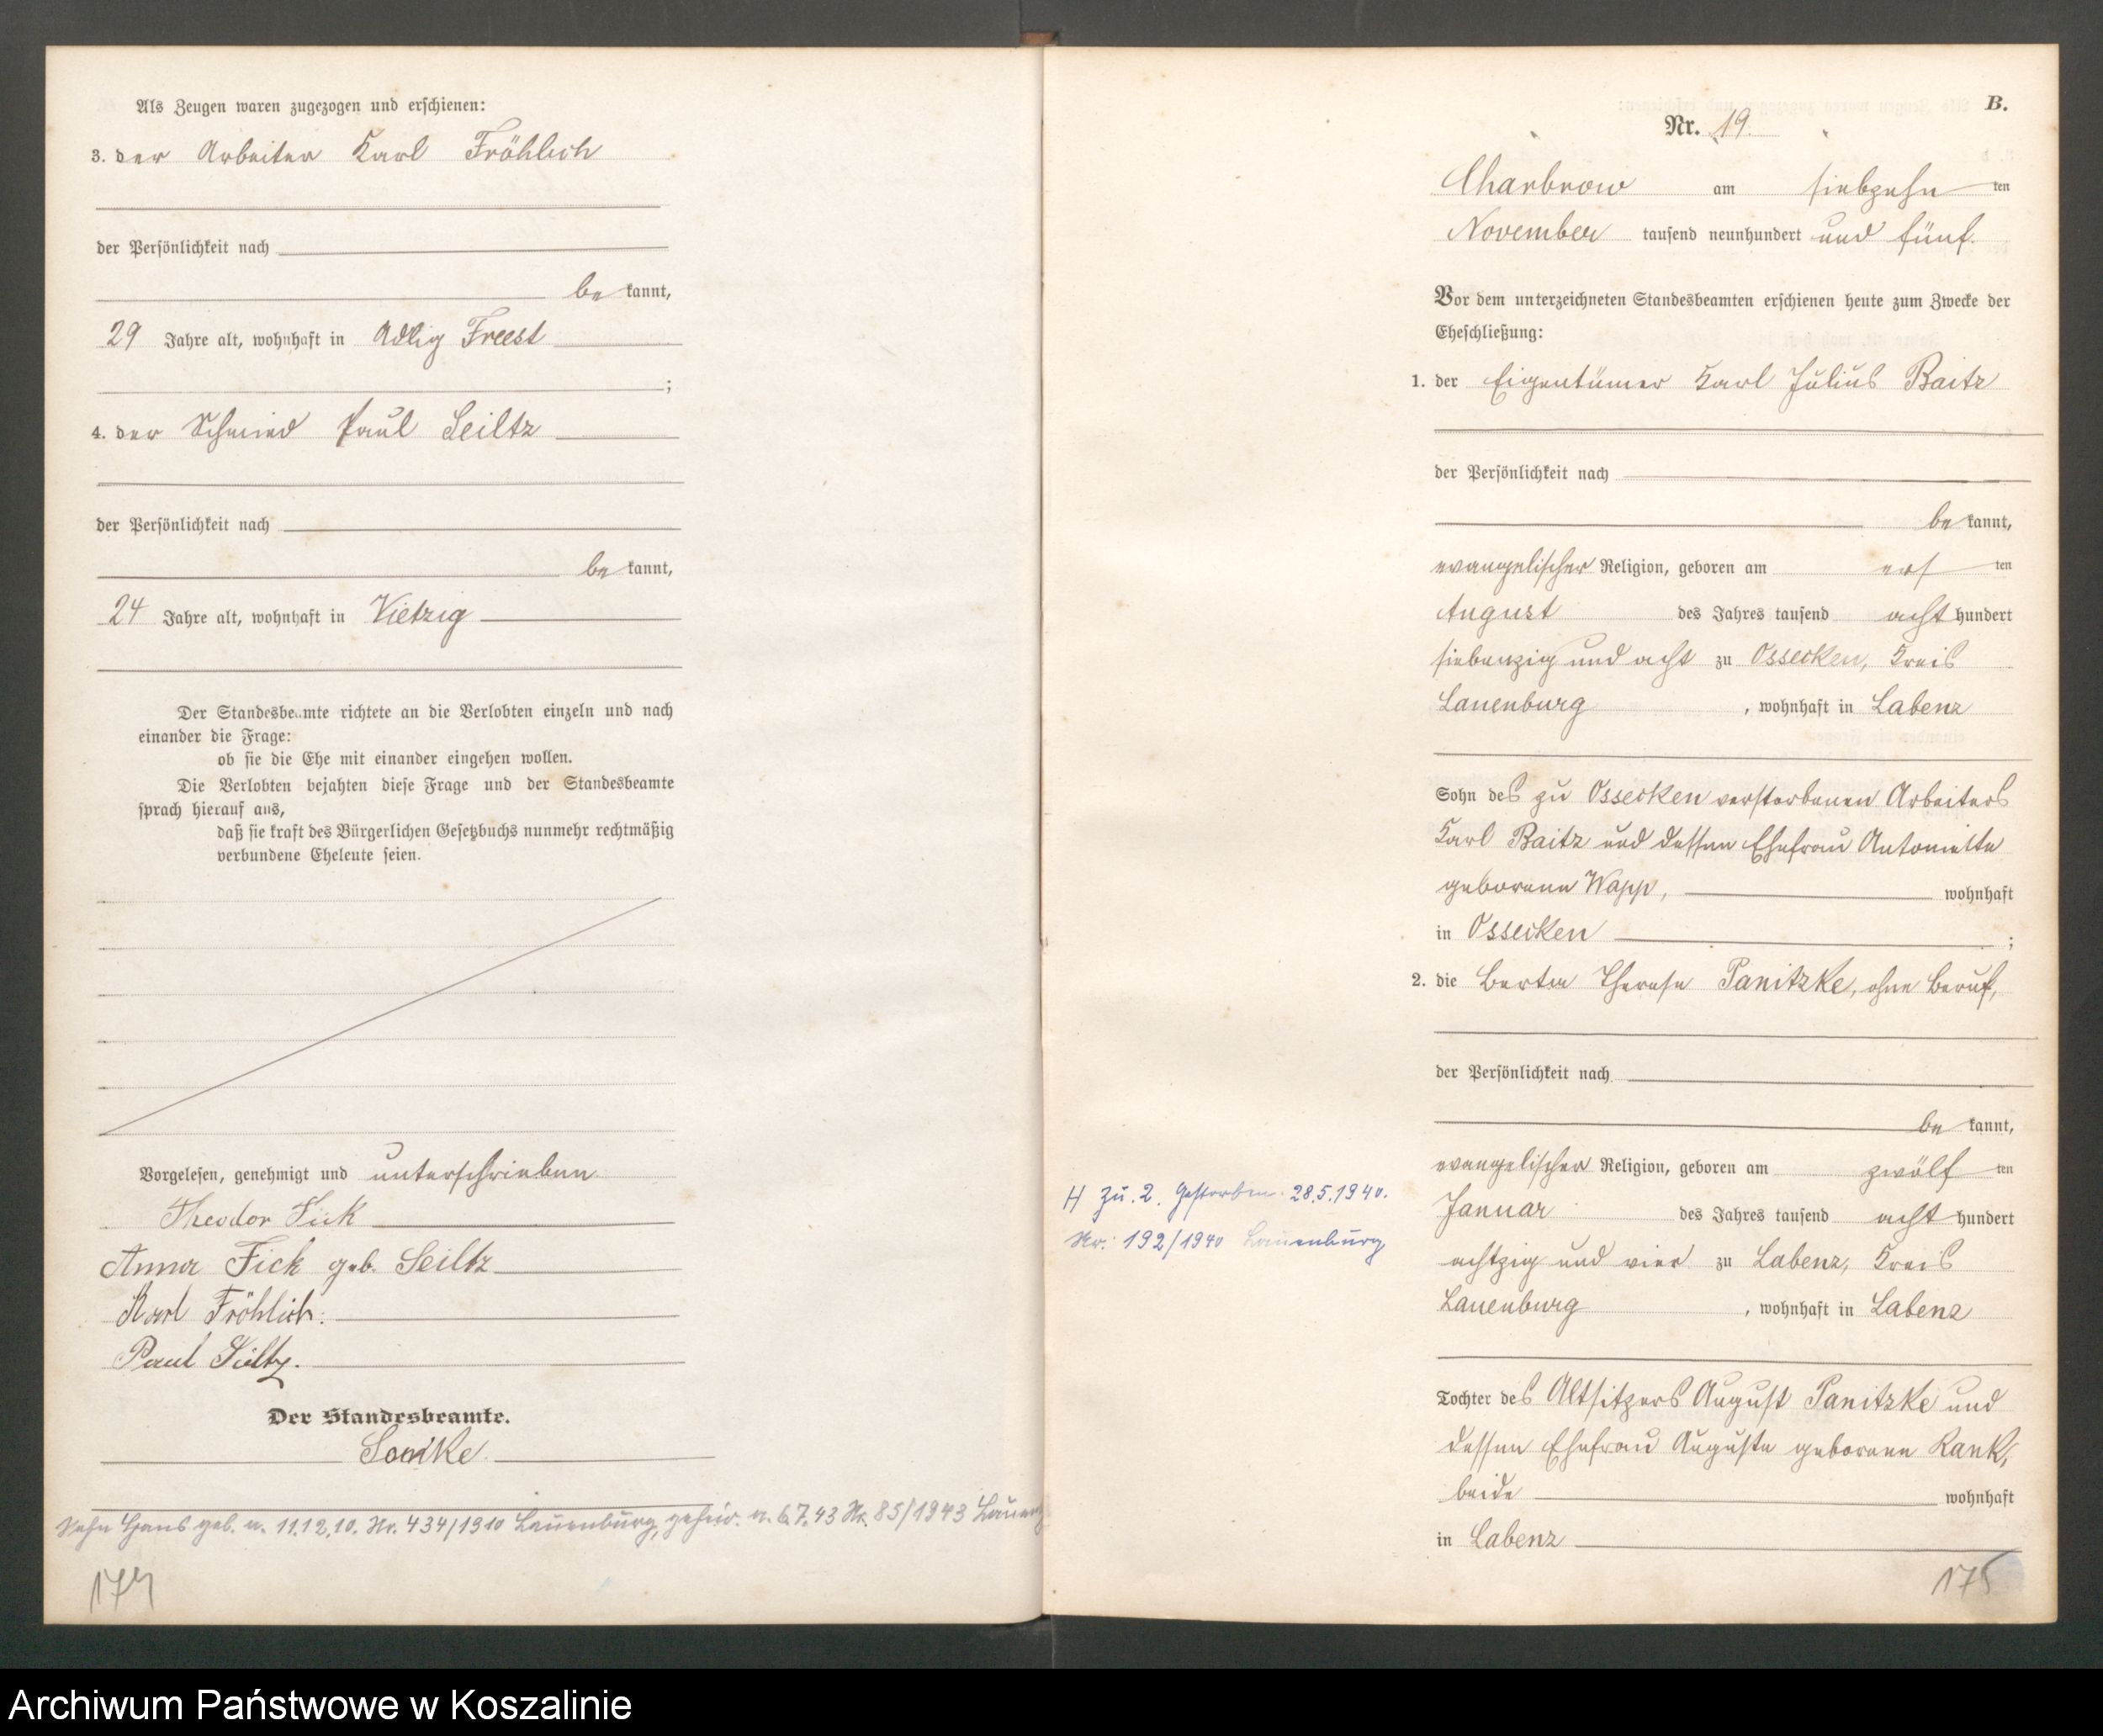 Als Zeugen waren zugezogen und erschienen:
3. der Arbeiter Karl Fröhlich
der Persönlichkeit nach
be kannt,
29 Jahre alt, wohnhaft in Adlig Freest
;
4. der Schmied Paul Seiltz
der Persönlichkeit nach
be kannt,
24 Jahre alt, wohnhaft in Vietzig
Der Standesbeamte richtete an die Verlobten einzeln und nach
einander die Frage:
ob sie die Ehe mit einander eingehen wollen.
Die Verlobten bejahten diese Frage und der Standesbeamte
sprach hierauf aus,
daß sie kraft des Bürgerlichen Gesetzbuchs nunmehr rechtmäßig
verbundene Eheleute seien.
Vorgelesen, genehmigt und unterschrieben
Theodor Fick
Anna Fick geb. Seiltz
Karl Fröhlich.
Paul Seiltz.
Der Standesbeamte.
Sohn Hans geb. a. 11.12.10. Nr. 434/1910 Lauenburg, a. 6.7.43 Nr. 85/1943
174
B.
Nr. 19.
Charbrow am siebzehn ten
November tausend neunhundert und fünf.
Vor dem unterzeichneten Standesbeamten erschienen heute zum Zwecke der
Eheschließung:
1. der Eigentümer Karl Julius Baitz
der Persönlichkeit nach
be kannt,
evangelischer Religion, geboren am ers ten
August des Jahres tausend acht hundert
siebenzig und acht zu Ossecken, Kreis
Lauenburg , wohnhaft in Labenz
Sohn des zu Ossecken verstorbenen Arbeiters
Karl Baitz und dessen Ehefrau Antoniette
geborene Wapp, wohnhaft
in Ossecken ;
2. die Berta Therese Panitzke, ohne Beruf,
der Persönlichkeit nach
be kannt,
evangelischer Religion, geboren am zwölf ten
Januar des Jahres tausend acht hundert
achtzig und vier zu Labenz, Kreis
Lauenburg , wohnhaft in Labenz
Tochter des Altsitzers August Panitzke und
dessen Ehefrau Auguste geborene Rank,
beide wohnhaft
in Labenz
H zu. 2. Gestorben. 28.5.1940.
Nr. 192/1940 Lauenburg
175
Archiwum Państwowe w Koszalinie